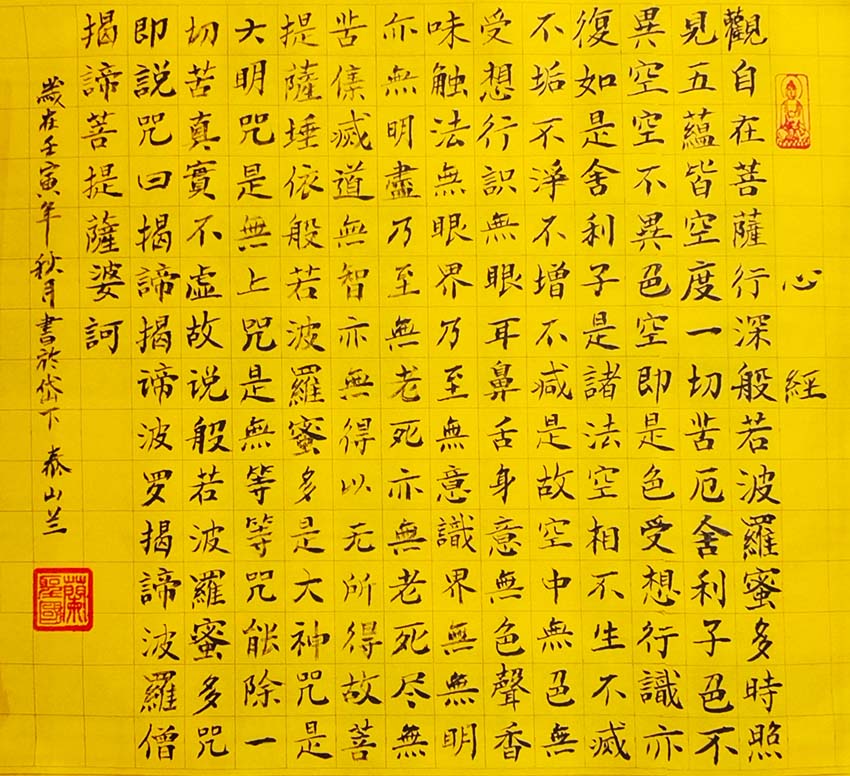 心經
觀自在菩薩行深般若波羅蜜多時照
見五蘊皆空度一切苦厄舍利子色不
異空空不異色空即是色受想行識亦
復如是舍利子是諸法空相不生不滅
不垢不淨不增不减是故空中無色無
受想行識無眼耳鼻舌身意無色聲香
味触法無眼界乃至無意識界無無明
亦無明盡乃至無老死亦無老死尽無
苦集滅道無智亦無得以无所得故菩
提薩埵依般若波羅蜜多是大神咒是
大明咒是無上咒是無等等咒能除一
切苦真實不虛故说般若波羅蜜多咒
即說咒曰揭諦揭谛波罗揭諦波羅僧
揭諦菩提薩婆訶
歲在壬寅年秋月書於岱下 泰山兰